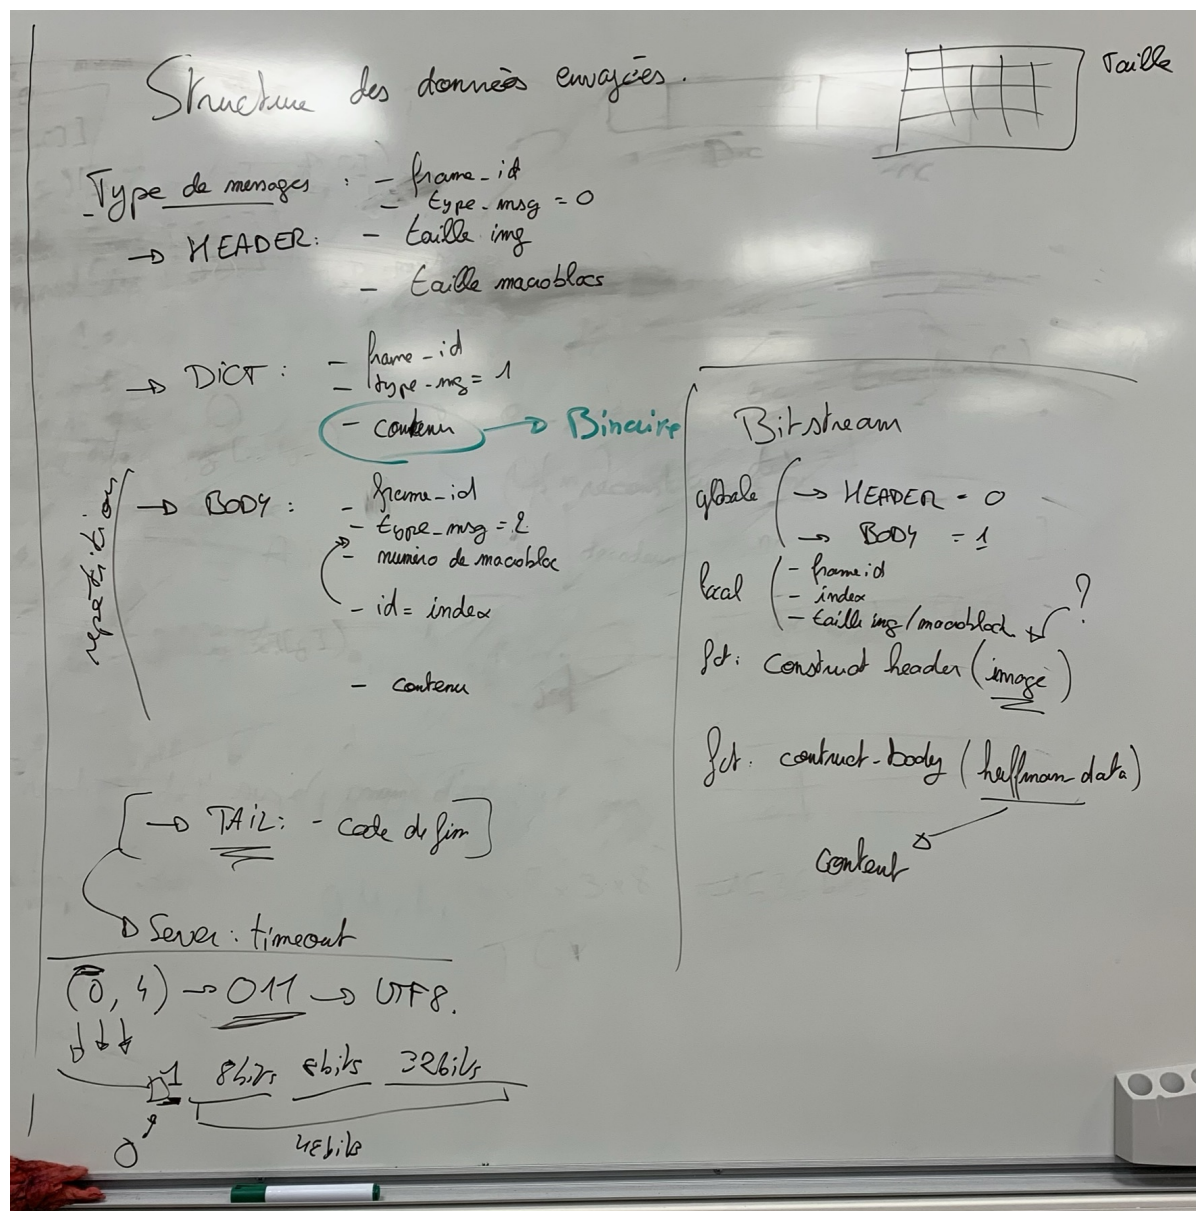 Structure des données envoyées.
Taille
Type de messages : - frame_id
- type_msg = 0
→ HEADER: - taille img
- taille macroblocs
→ DICT : - frame_id
- type_msg = 1
- contenu → Binaire
repetition
→ BODY : - frame_id
- type_msg = 2
- numéro de macrobloc
- id = index
- contenu
[→ TAIL: - code de fin]
→ Server : timeout
(0, 4) → 011 → UTF8.
1 8bits 8bits 32bits
0
48bits
Bitstream
globale → HEADER = 0
→ BODY = 1
local - frame id
- index
- taille img/macroblock ?
fct: construct header (image)
fct: contruct-body (huffman-data)
content